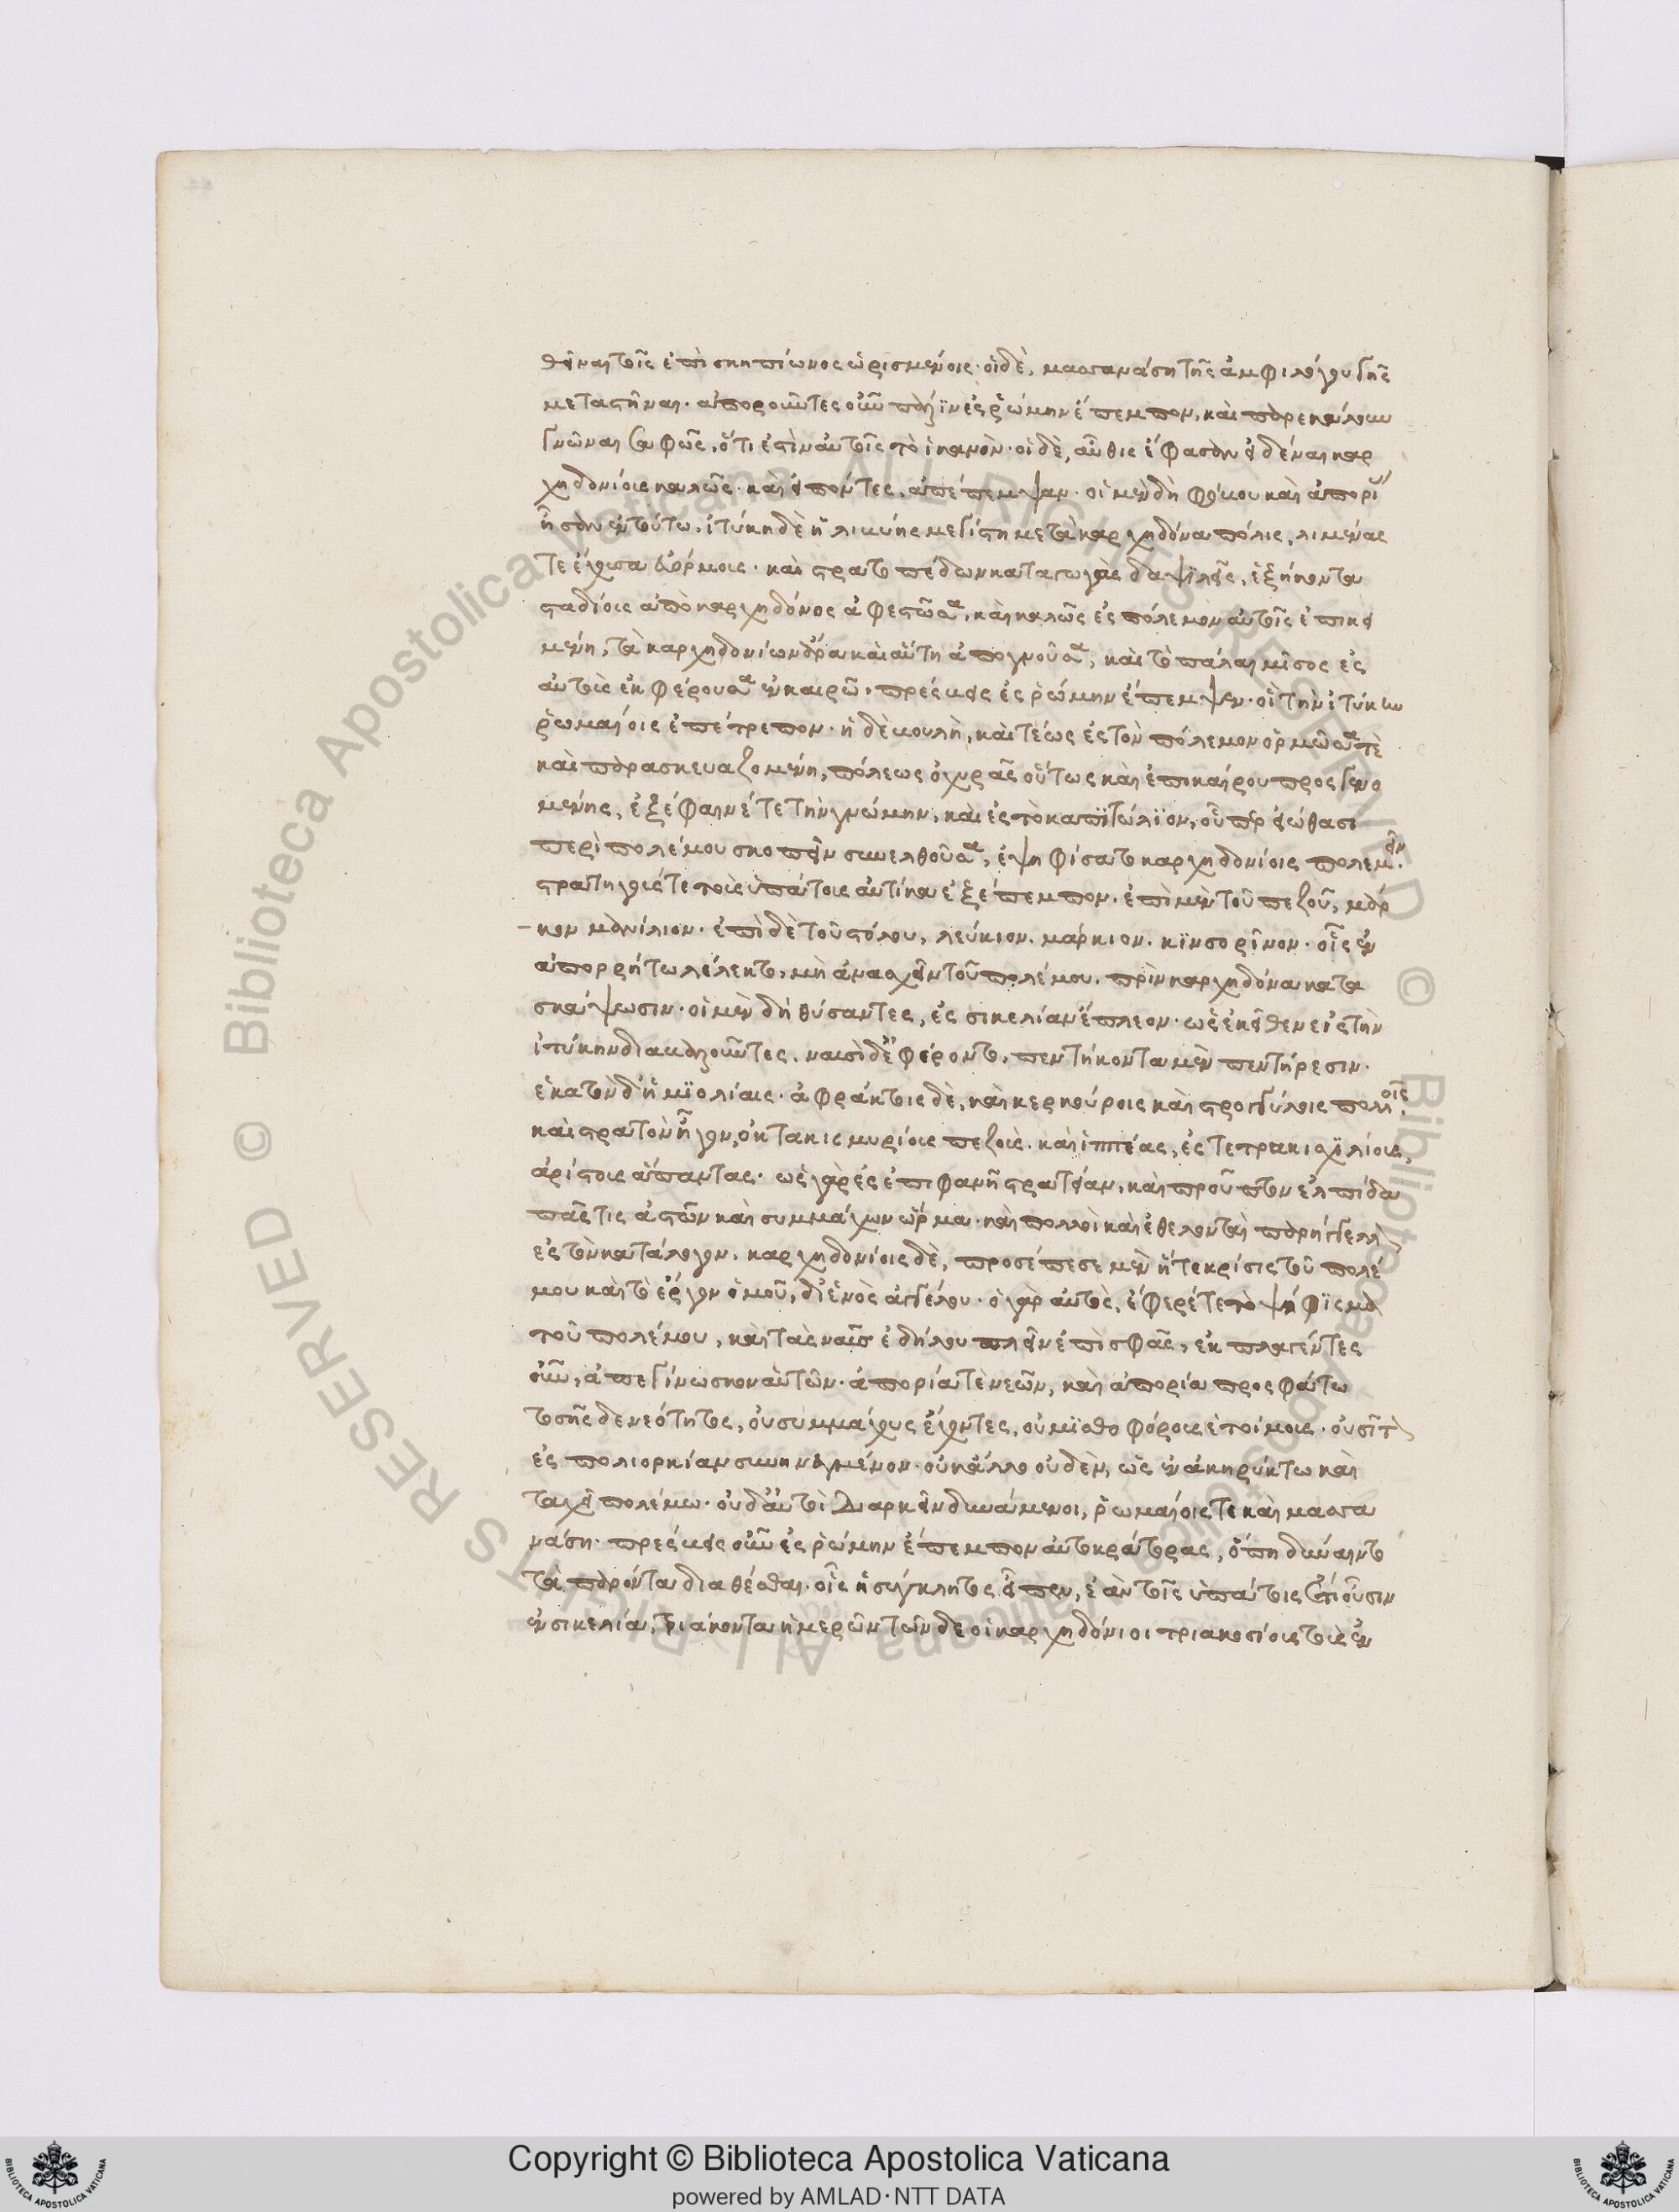 θῆναι τοῖς ἐπὶ σκηπίωνος ὡρισμένοις· οἱ δὲ, μασσανάσσῃ τῆς ἀμφιλόγου γῆς
μεταστῆναι. ἀποροῦντες οὖν πάλιν ἐς ῥώμην ἔπεμπον, καὶ παρεκάλουν
γνῶναι σαφῶς, ὅτι ἐστὶν αὐτοῖς τὸ ἱκανόν· οἱ δὲ, αὖθις ἔφασαν εἰδέναι καρ
χηδονίους καλῶς. καὶ εἰπόντες, ἀπέπεμψαν. οἱ μὲν δὴ φόβου καὶ ἀπορίας
ἦσαν ἐν τούτω. ἰτύκη δὲ ἡ λιβύης μεγίστη μετὰ καρχηδόνα πόλις, λιμένας
τε ἔχουσα εὐόρμους. καὶ στρατοπέδων καταγωγὰς δαψιλεῖς, ἑξήκοντα
σταδίους ἀπὸ καρχηδόνος ἀφεστῶσα, καὶ καλῶς ἐς πόλεμον αὐτοῖς ἐπικει
μένη, τὰ καρχηδονίων ἄρα καὶ αὕτη ἀπογνοῦσα, καὶ τὸ πάλαι μῖσος ἐς
αὐτοὺς ἐκφέρουσα ἐν καιρῶ. πρέσβεις ἐς ῥώμην ἔπεμψεν. οἳ τὴν ἰτύκην
ῥωμαίοις ἐπέτρεπον. ἡ δὲ βουλὴ, καὶ τέως ἐς τὸν πόλεμον ὁρμῶσα τὲ
καὶ παρασκευαζομένη, πόλεως ὀχυρᾶς οὕτως καὶ ἐπικαίρου προσγενο
μένης, ἐξέφαινέ τε τὴν γνώμην. καὶ ἐς τὸ καπϊτώλϊον, οὗπερ εἰώθασι
περὶ πολέμου σκοπεῖν συνελθοῦσα, ἐψηφίσατο καρχηδονίοις πολεμεῖν.
στρατηγούς τε τοὺς ὑπάτους αὐτίκα ἐξέπεμπον. ἐπὶ μὲν τοῦ πεζοῦ, μάρ
κον μανίλιον. ἐπὶ δὲ τοῦ στόλου, λεύκιον. μάρκιον. κϊνσορῖνον. οἷς ἐν
ἀπορρήτω λέλεκτο, μὴ ἀνασχεῖν τοῦ πολέμου. πρὶν καρχηδόνα κατα
σκάψωσιν. οἱ μὲν δὴ θύσαντες, ἐς σικελίαν ἔπλεον. ὡς ἐκεῖθεν εἰς τὴν
ἰτύκην διαβαλοῦντες. ναυσὶ δὲ ἐφέροντο, πεντήκοντα μὲν πεντήρεσιν.
ἑκατὸν δ' ἡμϊολίαις. ἀφράκτοις δὲ, καὶ κερκούροις καὶ στρογγύλοις πολλοῖς,
καὶ στρατὸν ἦγον, ὀκτακισμυρίους πεζοὺς. καὶ ἱππέας, ἐς τετρακισχϊλίους,
ἀρίστους ἅπαντας. ὡς γὰρ ἐς ἐπιφανῆ στρατείαν, καὶ προὖπτον ἐλπίδα
πᾶς τις ἀστῶν καὶ συμμάχων ὥρμα. καὶ πολλοὶ καὶ ἐθελονταὶ παρήγγελλον
ἐς τὸν κατάλογον. καρχηδονίοις δὲ, προσέπεσε μὲν ἥ τε κρίσις τοῦ πολέ
μου καὶ τὸ ἔργον ὁμοῦ, δι' ἑνὸς ἀγγέλου. ὁ γὰρ αὐτὸς, ἔφερέ τε τὸ ψήφϊσμα
τοῦ πολέμου, καὶ τὰς ναῦς ἐδήλου πλεῖν ἐπὶ σφᾶς, ἐκπλαγέντες
οὖν, ἀπεγίνωσκον αὑτῶν. ἀπορία τὲ νεῶν, καὶ ἀπορία προσφάτω
τοσῆς δε νεότητος, οὐ συμμάχους ἔχοντες, οὐ μϊσθοφόρους ἑτοίμους. οὐ σῖτον
ἐς πολιορκίαν συνηνεγμένον. οὐκ ἄλλο οὐδὲν, ὡς ἐν ἀκηρύκτω καὶ
ταχεῖ πολέμω. οὐδ' αὐτοὶ διαρκεῖν δυνάμενοι, ῥωμαίοις τε καὶ μασσα
νάσσῃ. πρέσβεις οὖν ἐς ῥώμην ἔπεμπον αὐτοκράτορας, ὅπῃ δύναιντο
τὰ παρόντα διαθέσθαι. οἷς ἡ σύγκλητος εἶπεν, ἐὰν τοῖς ὑπάτοις ἔτι οὖσιν
ἐν σικελία, τριάκοντα ἡμερῶν τῶνδε οἱ καρχηδόνιοι τριακοσίους τοὺς ἐν
Copyright © Biblioteca Apostolica Vaticana
powered by AMLAD·NTT DATA